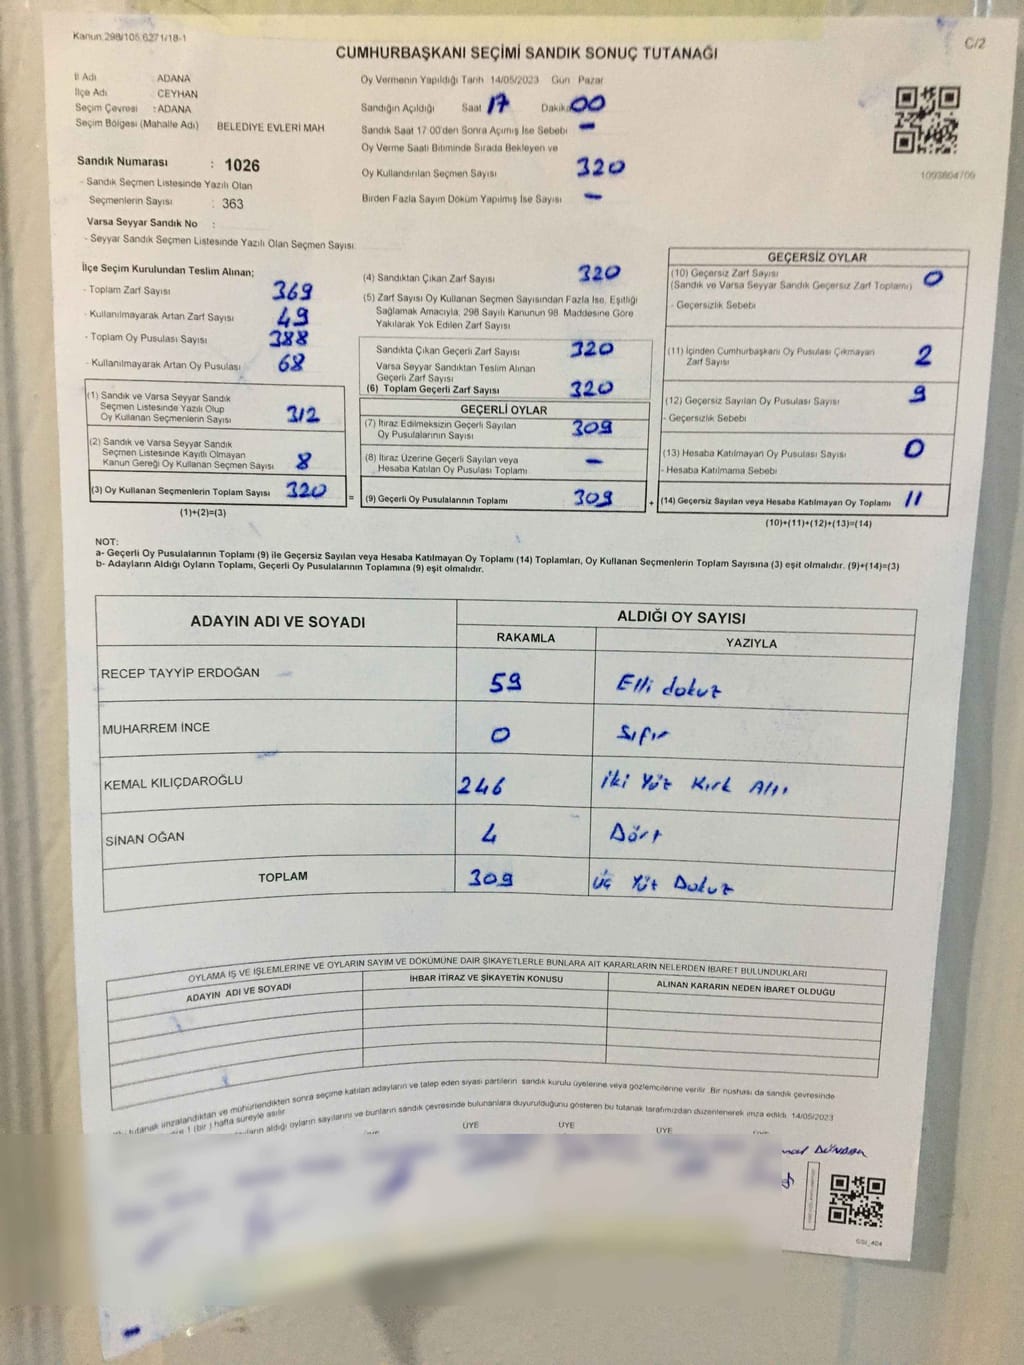 Kanun.298/105,6271/18-1
C/2
CUMHURBAŞKANI SEÇİMİ SANDIK SONUÇ TUTANAĞI
İl Adı : ADANA
İlçe Adı : CEYHAN
Seçim Çevresi : ADANA
Seçim Bölgesi (Mahalle Adı) BELEDİYE EVLERİ MAH
Sandık Numarası : 1026
- Sandık Seçmen Listesinde Yazılı Olan
Seçmenlerin Sayısı : 363
Varsa Seyyar Sandık No :
- Seyyar Sandık Seçmen Listesinde Yazılı Olan Seçmen Sayısı
Oy Vermenin Yapıldığı Tarih 14/05/2023 Gün Pazar
Sandığın Açıldığı Saat 17 Dakika 00
Sandık Saat 17 00'den Sonra Açımış İse Sebebi -
Oy Verme Saati Bitiminde Sırada Bekleyen ve
Oy Kullandırılan Seçmen Sayısı 320
Birden Fazla Sayım Döküm Yapılmış İse Sayısı -
İlçe Seçim Kurulundan Teslim Alınan;
- Toplam Zarf Sayısı 369
- Kullanılmayarak Artan Zarf Sayısı 49
- Toplam Oy Pusulası Sayısı 388
- Kullanılmayarak Artan Oy Pusulası 68
(1) Sandık ve Varsa Seyyar Sandık
Seçmen Listesinde Yazılı Olup
Oy Kullanan Seçmenlerin Sayısı 312
(2) Sandık ve Varsa Seyyar Sandık
Seçmen Listesinde Kayıtlı Olmayan
Kanun Gereği Oy Kullanan Seçmen Sayısı 8
(3) Oy Kullanan Seçmenlerin Toplam Sayısı 320
(1)+(2)=(3)
=
(4) Sandıktan Çıkan Zarf Sayısı 320
(5) Zarf Sayısı Oy Kullanan Seçmen Sayısından Fazla İse, Eşitliği
Sağlamak Amacıyla, 298 Sayılı Kanunun 98 Maddesine Göre
Yakılarak Yok Edilen Zarf Sayısı
Sandıkta Çıkan Geçerli Zarf Sayısı 320
Varsa Seyyar Sandıktan Teslim Alınan
Geçerli Zarf Sayısı
(6) Toplam Geçerli Zarf Sayısı 320
GEÇERLİ OYLAR
(7) İtiraz Edilmeksizin Geçerli Sayılan
Oy Pusulalarının Sayısı 309
(8) İtiraz Üzerine Geçerli Sayılan veya
Hesaba Katılan Oy Pusulası Toplamı -
(9) Geçerli Oy Pusulalarının Toplamı 309
+
GEÇERSİZ OYLAR
(10) Geçersiz Zarf Sayısı
(Sandık ve Varsa Seyyar Sandık Geçersiz Zarf Toplamı) 0
- Geçersizlik Sebebi
(11) İçinden Cumhurbaşkanı Oy Pusulası Çıkmayan
Zarf Sayısı 2
(12) Geçersiz Sayılan Oy Pusulası Sayısı 9
- Geçersizlik Sebebi
(13) Hesaba Katılmayan Oy Pusulası Sayısı 0
- Hesaba Katılmama Sebebi
(14) Geçersiz Sayılan veya Hesaba Katılmayan Oy Toplamı 11
(10)+(11)+(12)+(13)=(14)
NOT:
a- Geçerli Oy Pusulalarının Toplamı (9) ile Geçersiz Sayılan veya Hesaba Katılmayan Oy Toplamı (14) Toplamları, Oy Kullanan Seçmenlerin Toplam Sayısına (3) eşit olmalıdır. (9)+(14)=(3)
b- Adayların Aldığı Oyların Toplamı, Geçerli Oy Pusulalarının Toplamına (9) eşit olmalıdır.
ADAYIN ADI VE SOYADI ALDIĞI OY SAYISI
RAKAMLA YAZIYLA
RECEP TAYYİP ERDOĞAN 59 Elli dokuz
MUHARREM İNCE 0 Sıfır
KEMAL KILIÇDAROĞLU 246 iki Yüz Kırk Altı
SİNAN OĞAN 4 Dört
TOPLAM 309 üç Yüz Dokuz
OYLAMA İŞ VE İŞLEMLERİNE VE OYLARIN SAYIM VE DÖKÜMÜNE DAİR ŞİKAYETLERLE BUNLARA AİT KARARLARIN NELERDEN İBARET BULUNDUKLARI
ADAYIN ADI VE SOYADI İHBAR İTİRAZ VE ŞİKAYETİN KONUSU ALINAN KARARIN NEDEN İBARET OLDUĞU
tutanak imzalandıktan ve mühürlendikten sonra seçime katılan adayların ve talep eden siyasi partilerin sandık kurulu üyelerine veya gözlemcilerine verilir. Bir nüshası da sandık çevresinde
1 (bir) hafta süreyle asılır.
aldığı oyların sayılarını ve bunların sandık çevresinde bulunanlara duyurulduğunu gösteren bu tutanak tarafımızdan düzenlenerek imza edildi. 14/05/2023
ÜYE ÜYE ÜYE
DÜNDAR